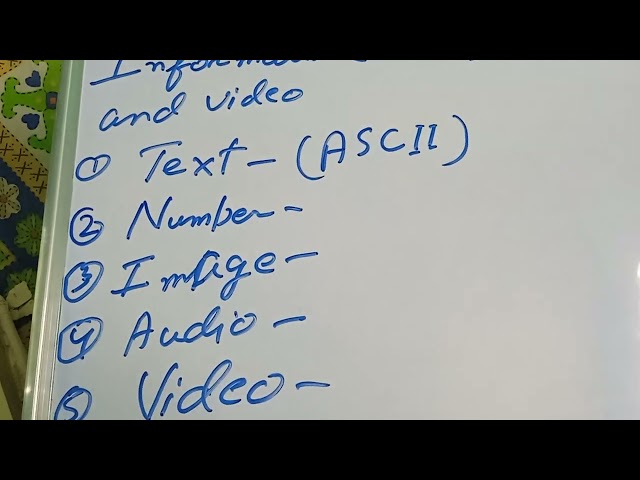 and video
① Text - (ASCII)
② Number -
③ Image -
④ Audio -
⑤ Video -